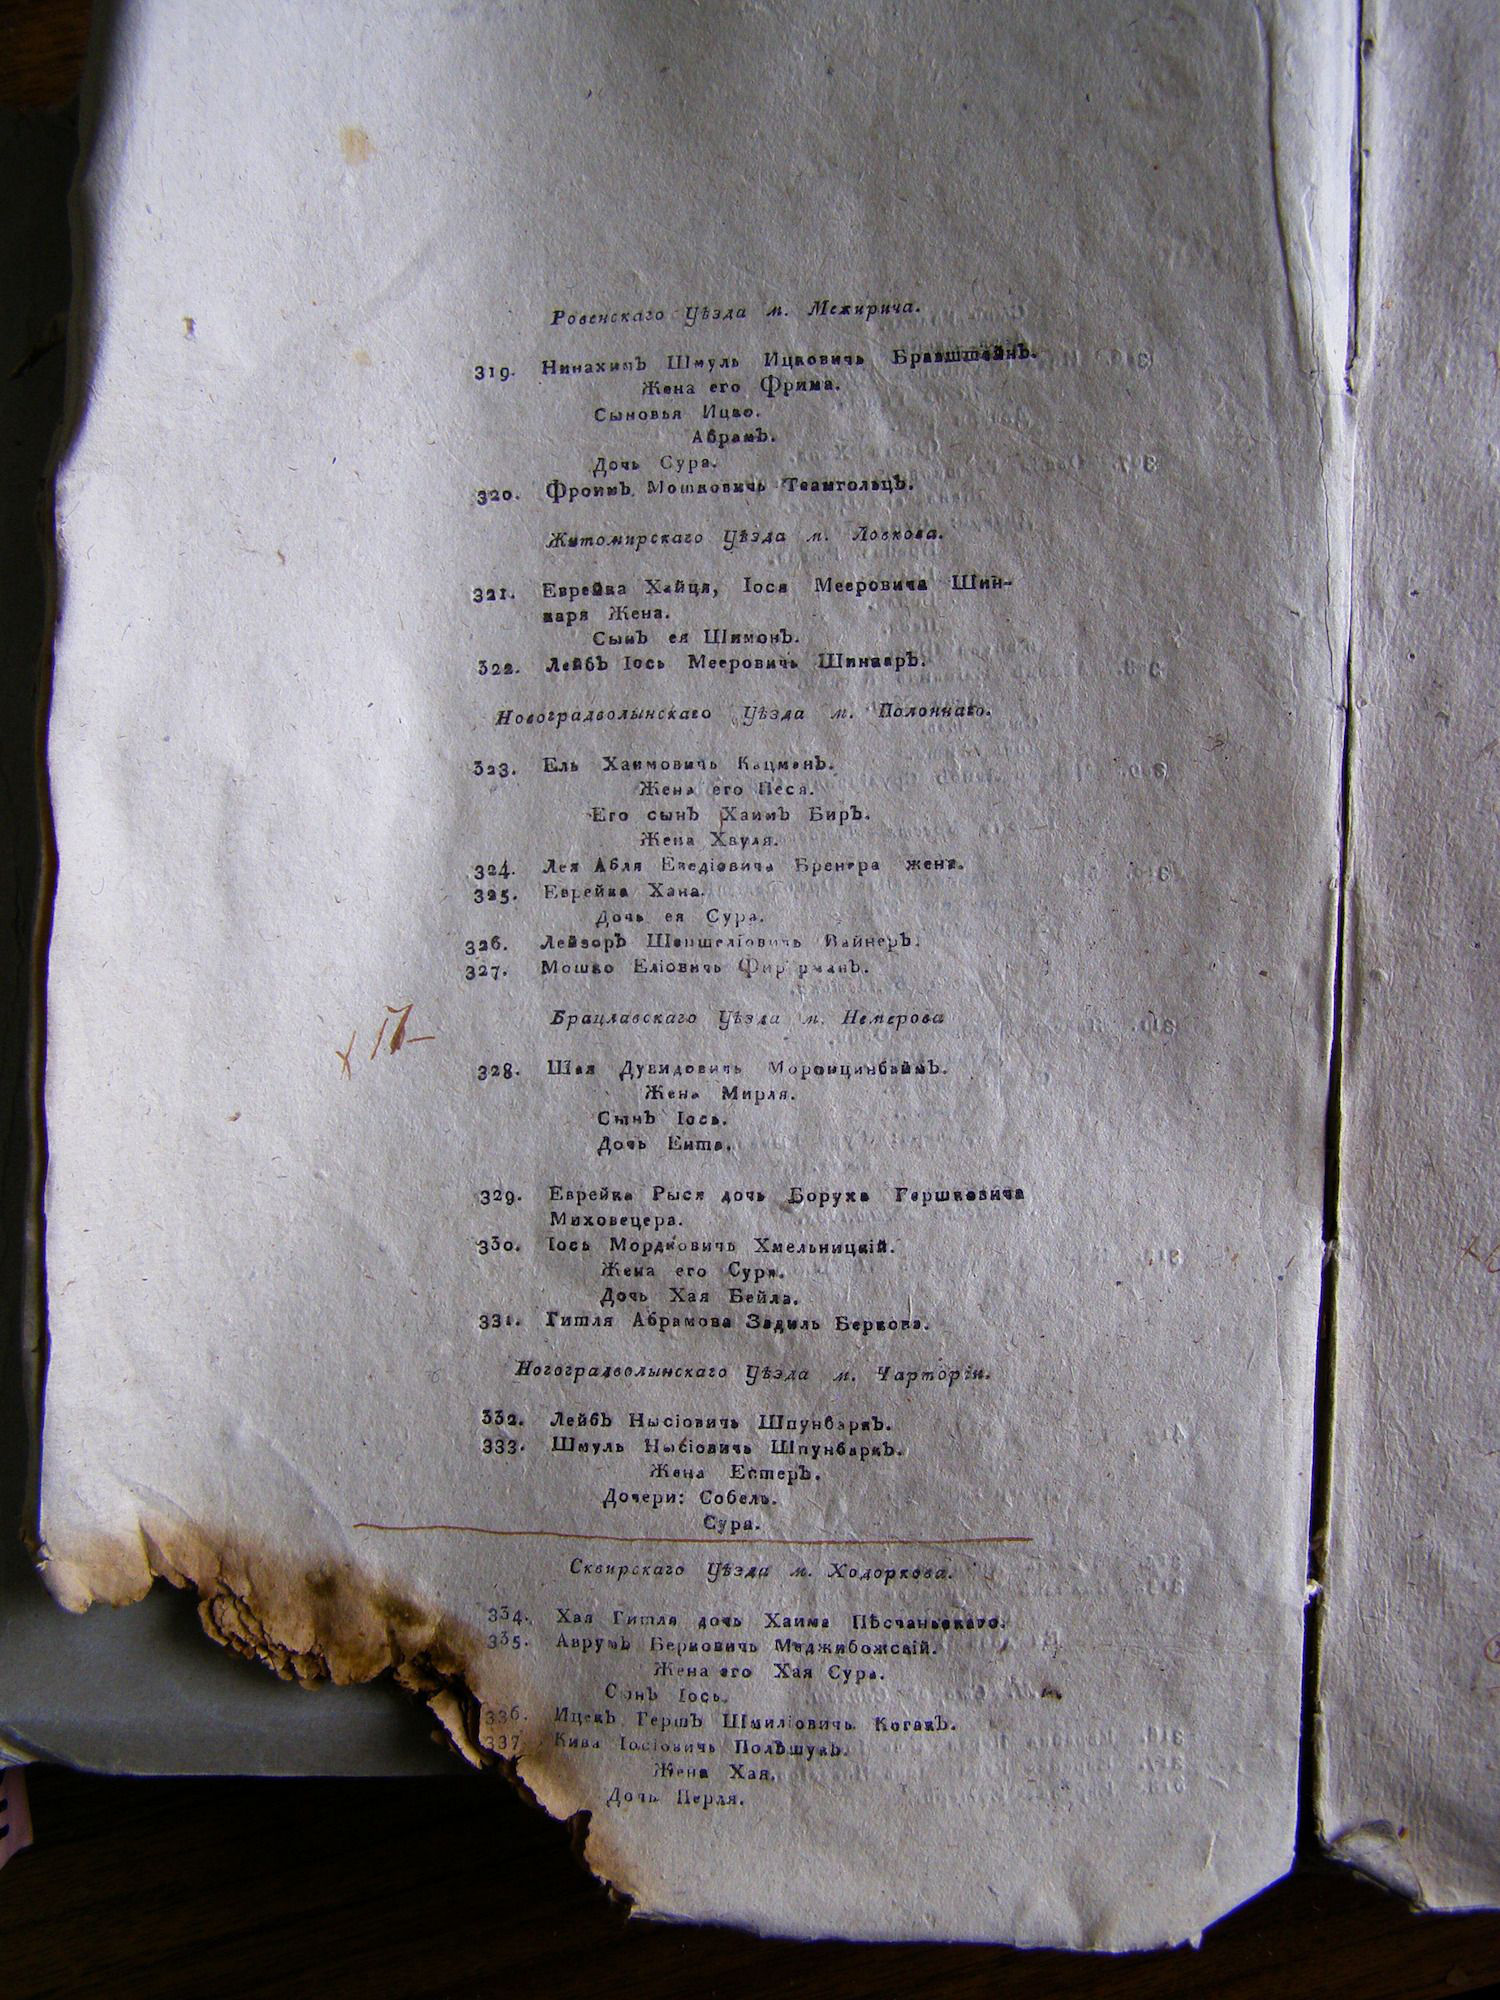 Ровенскаго Уѣзда м. Межирича.
319. Нинахимъ Шмуль Ицковичь Бравштейнъ.
Жена его Фрима.
Сыновья Ицко.
Абрамъ.
Дочь Сура.
320. Фроимъ Мошковичь
Житомирскаго Уѣзда м. Ловкова.
321. Еврейка Хайця, Іося Мееровича Шин-
каря Жена.
Сынъ ея Шимонъ.
322. Лейбъ Іось Мееровичь Шинкаръ.
Новоградволынскаго Уѣзда м. Полоннаго.
323. Ель Хаимовичь Кацманъ.
Жена его Песя.
Его сынъ Хаимъ Биръ.
Жена Хвуля.
324. Лея Абля Бренера жена.
325. Еврейка Хана.
Дочь ея Сура.
326. Лейзоръ Вайнеръ.
327. Мошко Еліовичь
Брацлавскаго Уѣзда м. Немерова
х 17-
328. Шая Дувидовичь
Жена Мирля.
Сынъ Іось.
Дочь Ента.
329. Еврейка Рыся дочь Боруха Гершковича
Миховецера.
330. Іось Мордковичь Хмельницкій.
Жена его Сура.
Дочь Хая Бейла.
331. Гитля Абрамова Беркова.
Ногоградволынскаго Уѣзда м. Чарторіи.
332. Лейбъ Нысіовичь Шпунбаркъ.
333. Шмуль Нысіовичь Шпунбаркъ.
Жена Естеръ.
Дочери: Собель.
Сура.
Сквирскаго Уѣзда м. Ходоркова.
334. Хая Гитля дочь Хаима Пѣсчаньскаго.
335. Аврумъ Берковичь Меджибожскій.
Жена его Хая Сура.
Сынъ Іось.
336. Ицекъ Гершъ Шмиліовичь Когакъ.
337. Кива Іосіовичь Польшукъ.
Жена Хая.
Дочь Перля.